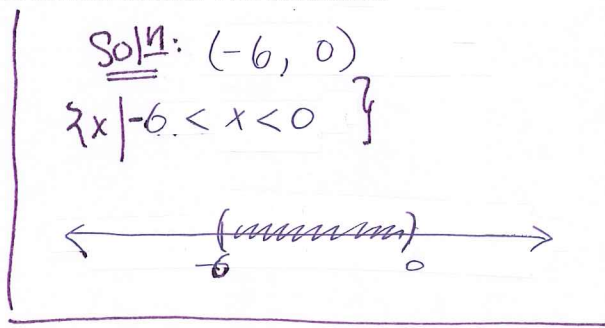 Soln: (-6, 0)
{x|-6 < x < 0 }
( )
-6 0